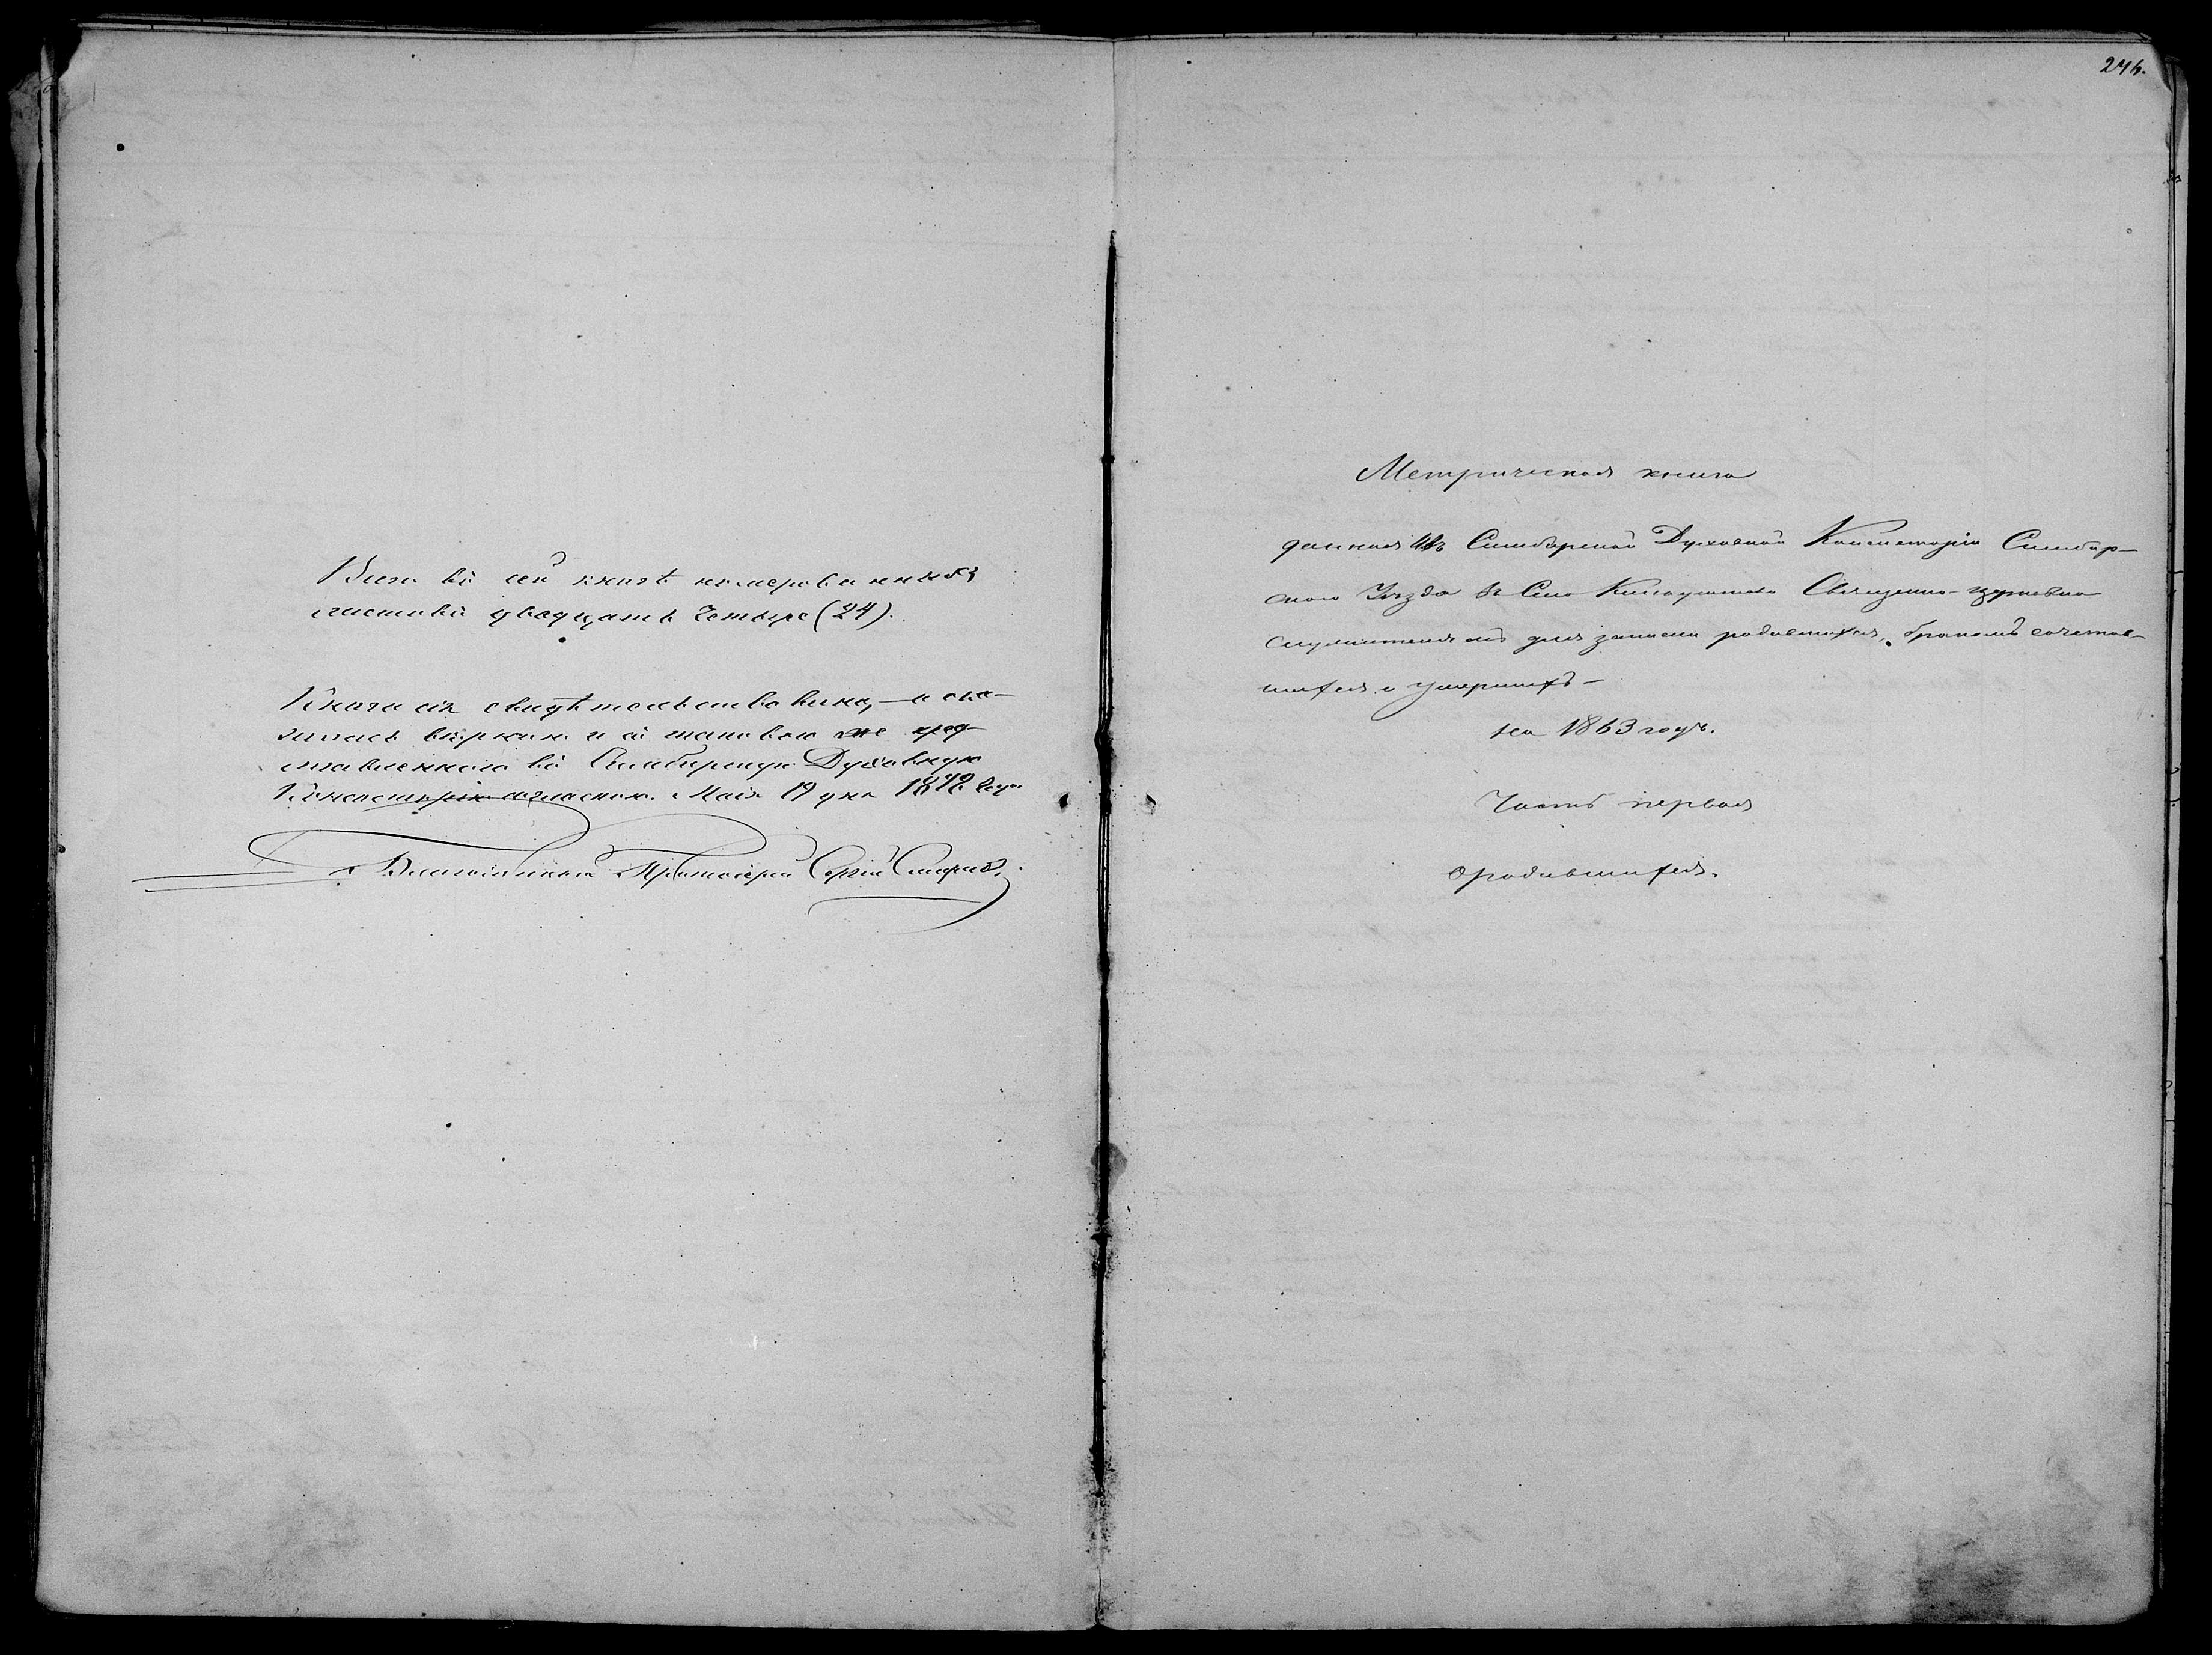 Всего въ сей книгѣ номерованныхъ
листовъ двадцать четыре (24).
Книга сія свидѣтельствована, – и ока-
залась вѣрною и съ таковою же пред-
ставленною въ Симбирскую Духовную
Консисторію согласною. Маія 19 дня года
Благочинный Протоіерей Сергій
Метрическая книга
данная изъ Симбирской Духовной Консисторіи Симбир-
скаго Уѣзда въ Село Священно-церковно
служителямъ для записи родившихся, бракомъ сочетав-
шихся и умершихъ –
на 1863 годъ.
Часть первая
о родившихся.